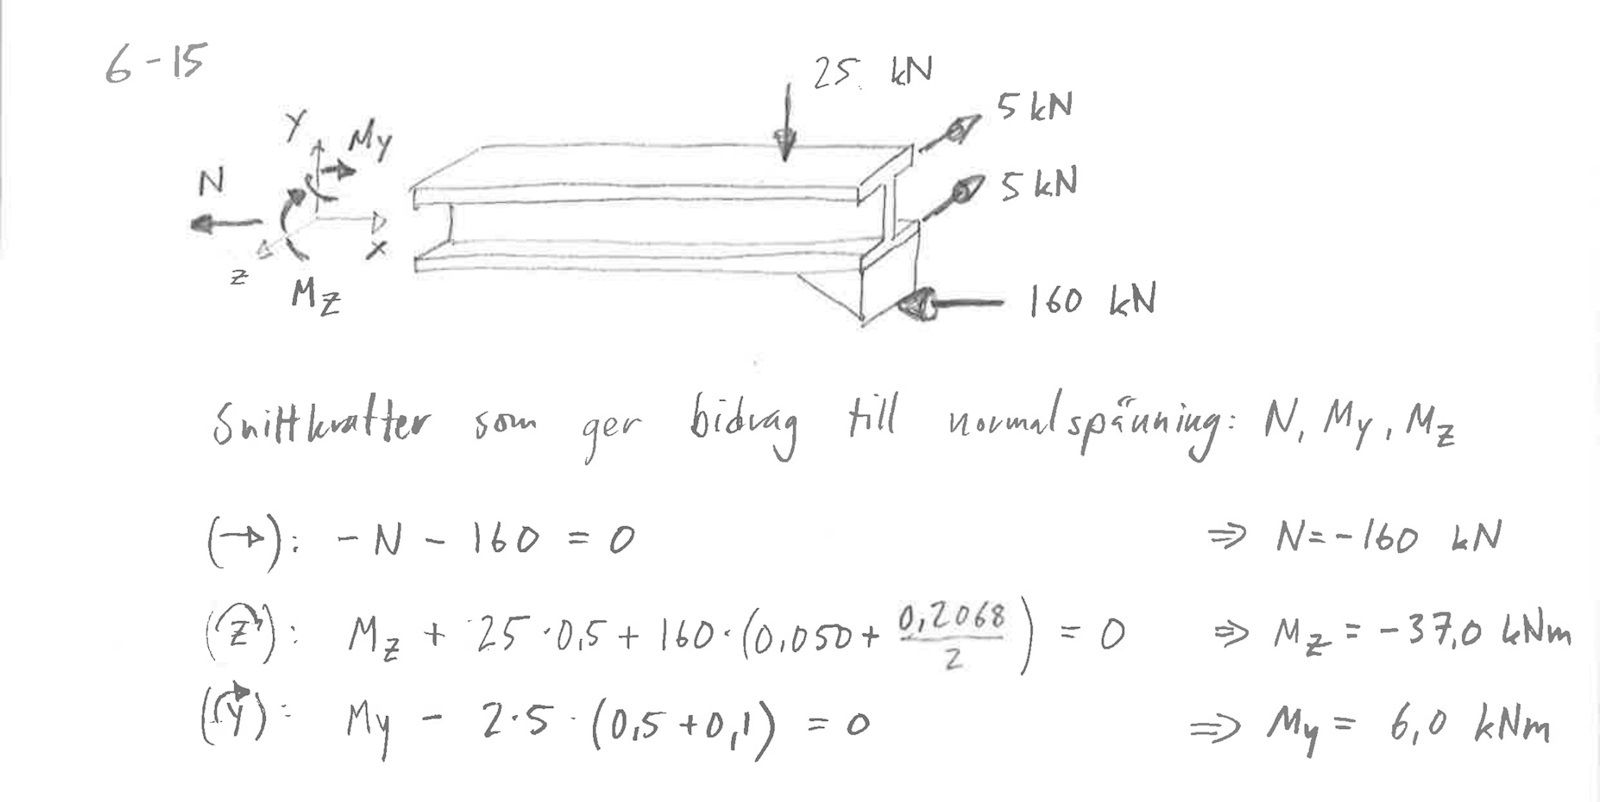 6-15
25 kN
5 kN
5 kN
160 kN
N
Y
My
X
Z
Mz
Snittkrafter som ger bidrag till normalspänning: N, My, Mz
(→): -N - 160 = 0 ⇒ N = -160 kN
(z↷): Mz + 25·0,5 + 160·(0,050 + 0,2068/2) = 0 ⇒ Mz = -37,0 kNm
(y↷): My - 2·5·(0,5+0,1) = 0 ⇒ My = 6,0 kNm